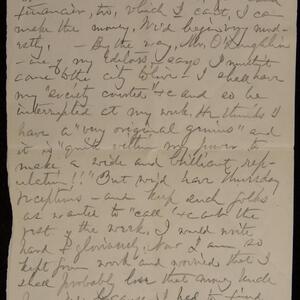 financier, too, which I can't, I can
make the money. We'd begin very mod-
estly, — By the way, Mr. O'Laughlin
— one of my Editors, says I mustn't
come to the city to live — I shall have
my "society courted" +c and so be
interrupted at my work. He thinks I
have a "very original genius" and
it is "quite within my power to
make a wide and brilliant rep-
utation"!! But we'd have Thursday
receptions — and keep such folks
as wanted to "call" +c out the
rest of the week. I would write
hard & gloriously. Now I am so
kept from work and worried that I
shall probably lose that money